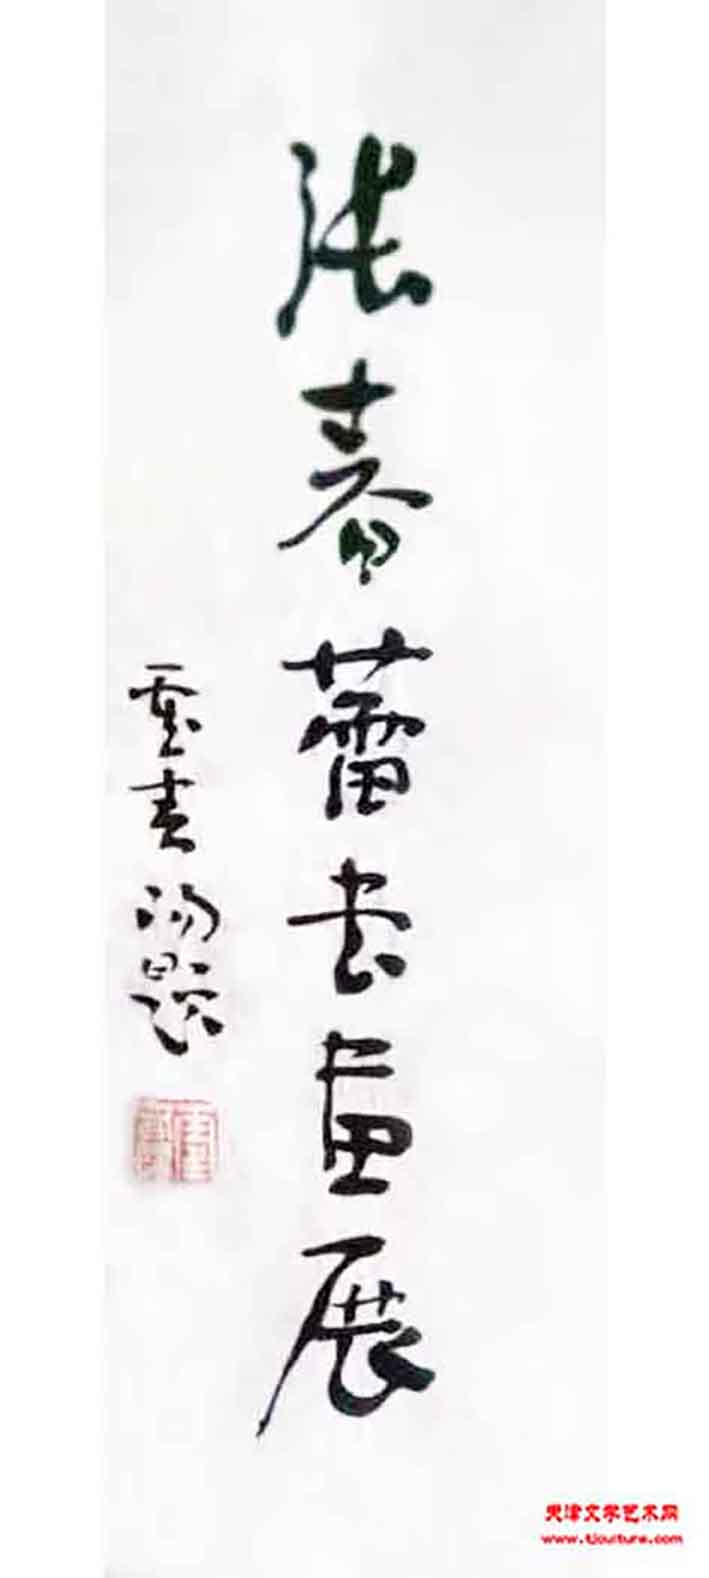 张春蕾书画展
霍春阳题
天津文学艺术网
www.tjculture.com